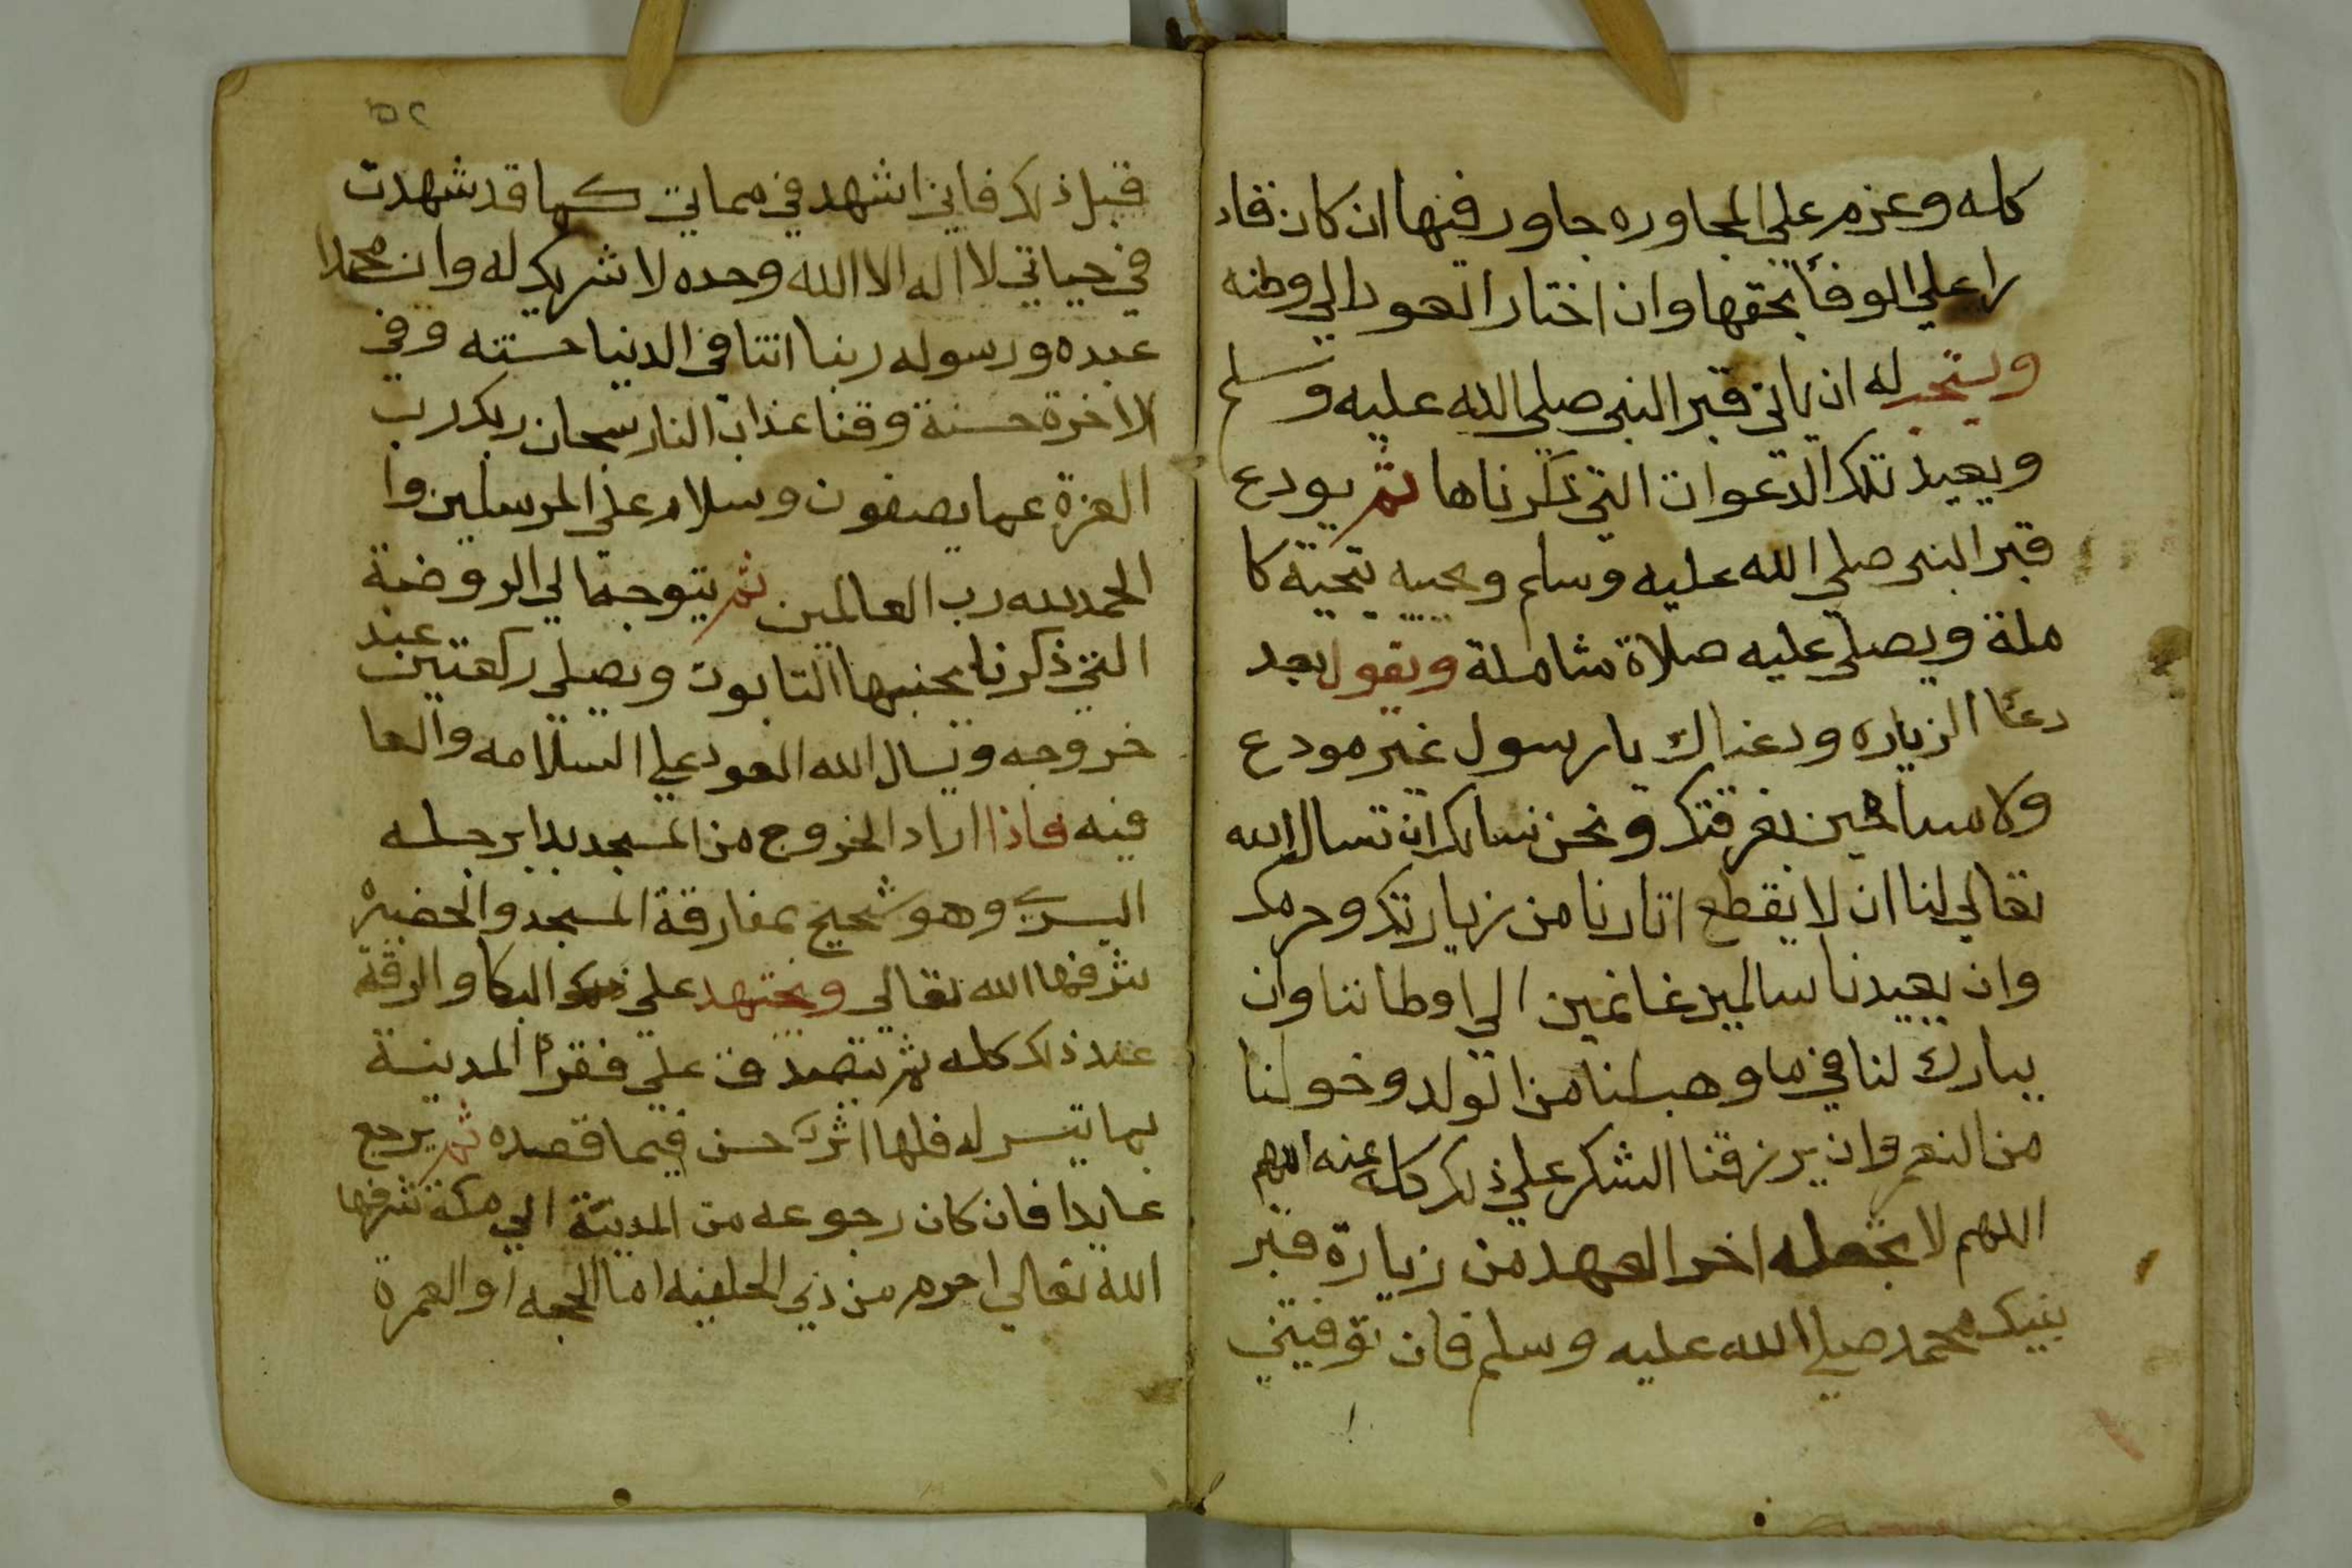 كله وعزم علي المجاوره جاور فيها ان كان قاد
را علي الوفأ بحقها وان اختار العود الي وطنه
ويستحب له ان ياتي قبر النبي صلي الله عليه وسلم
ويعيد تلك الدعوات التي ذكرناها ثم يودع
قبر النبي صلي الله عليه وسلم ويحييه بتحية كا
ملة ويصلي عليه صلاة شاملة ويقول بعد
دعأ الزياره ودعناك يا رسول غير مودع
ولا سامحين بفرقتك ونحن نسالك ان تسال الله
تعالي لنا ان لا يقطع اثارنا من زيارتك وحرمك
وان يعيدنا سالمين غانمين الي اوطاننا وان
يبارك لنا في ما وهب لنا من الولد وخولنا
من النعم وان يرزقنا الشكر علي ذلك كله عنه اللهم
اللهم لا تجعله اخر العهد من زيارة قبر
نبيك محمد صلي الله عليه وسلم فان توفيتني
٥٢
قبل ذلك فاني اشهد في مماتي كما قد شهدت
في حياتي لا اله الا الله وحده لا شريك له وان محمدا
عبده ورسوله ربنا اتنا في الدنيا حسنه وفي
الاخرة حسنة وقنا عذاب النار سبحان ربك رب
العزة عما يصفون وسلام علي المرسلين وا
الحمد لله رب العالمين ثم يتوجه الي الروضة
التي ذكرنا بجنبها التابوت ويصلي ركعتين عند
خروجه ويسال الله العود علي السلامه والعا
فيه فاذا اراد الخروج من المسجد بدا برجله
اليسري وهو شحيح بمفارقة المسجد والحضيرة
شرفها الله تعالي ويجتهد علي البكا والرقة
عند ذلك كله ثم يتصدق علي فقرأ المدينة
بما تيسر له فلها اثر حسن فيما قصده ثم يرجع
عايدا فان كان رجوعه من المدينة الي مكة شرفها
الله تعالي احرم من ذي الحليفه اما الحجه او العمرة